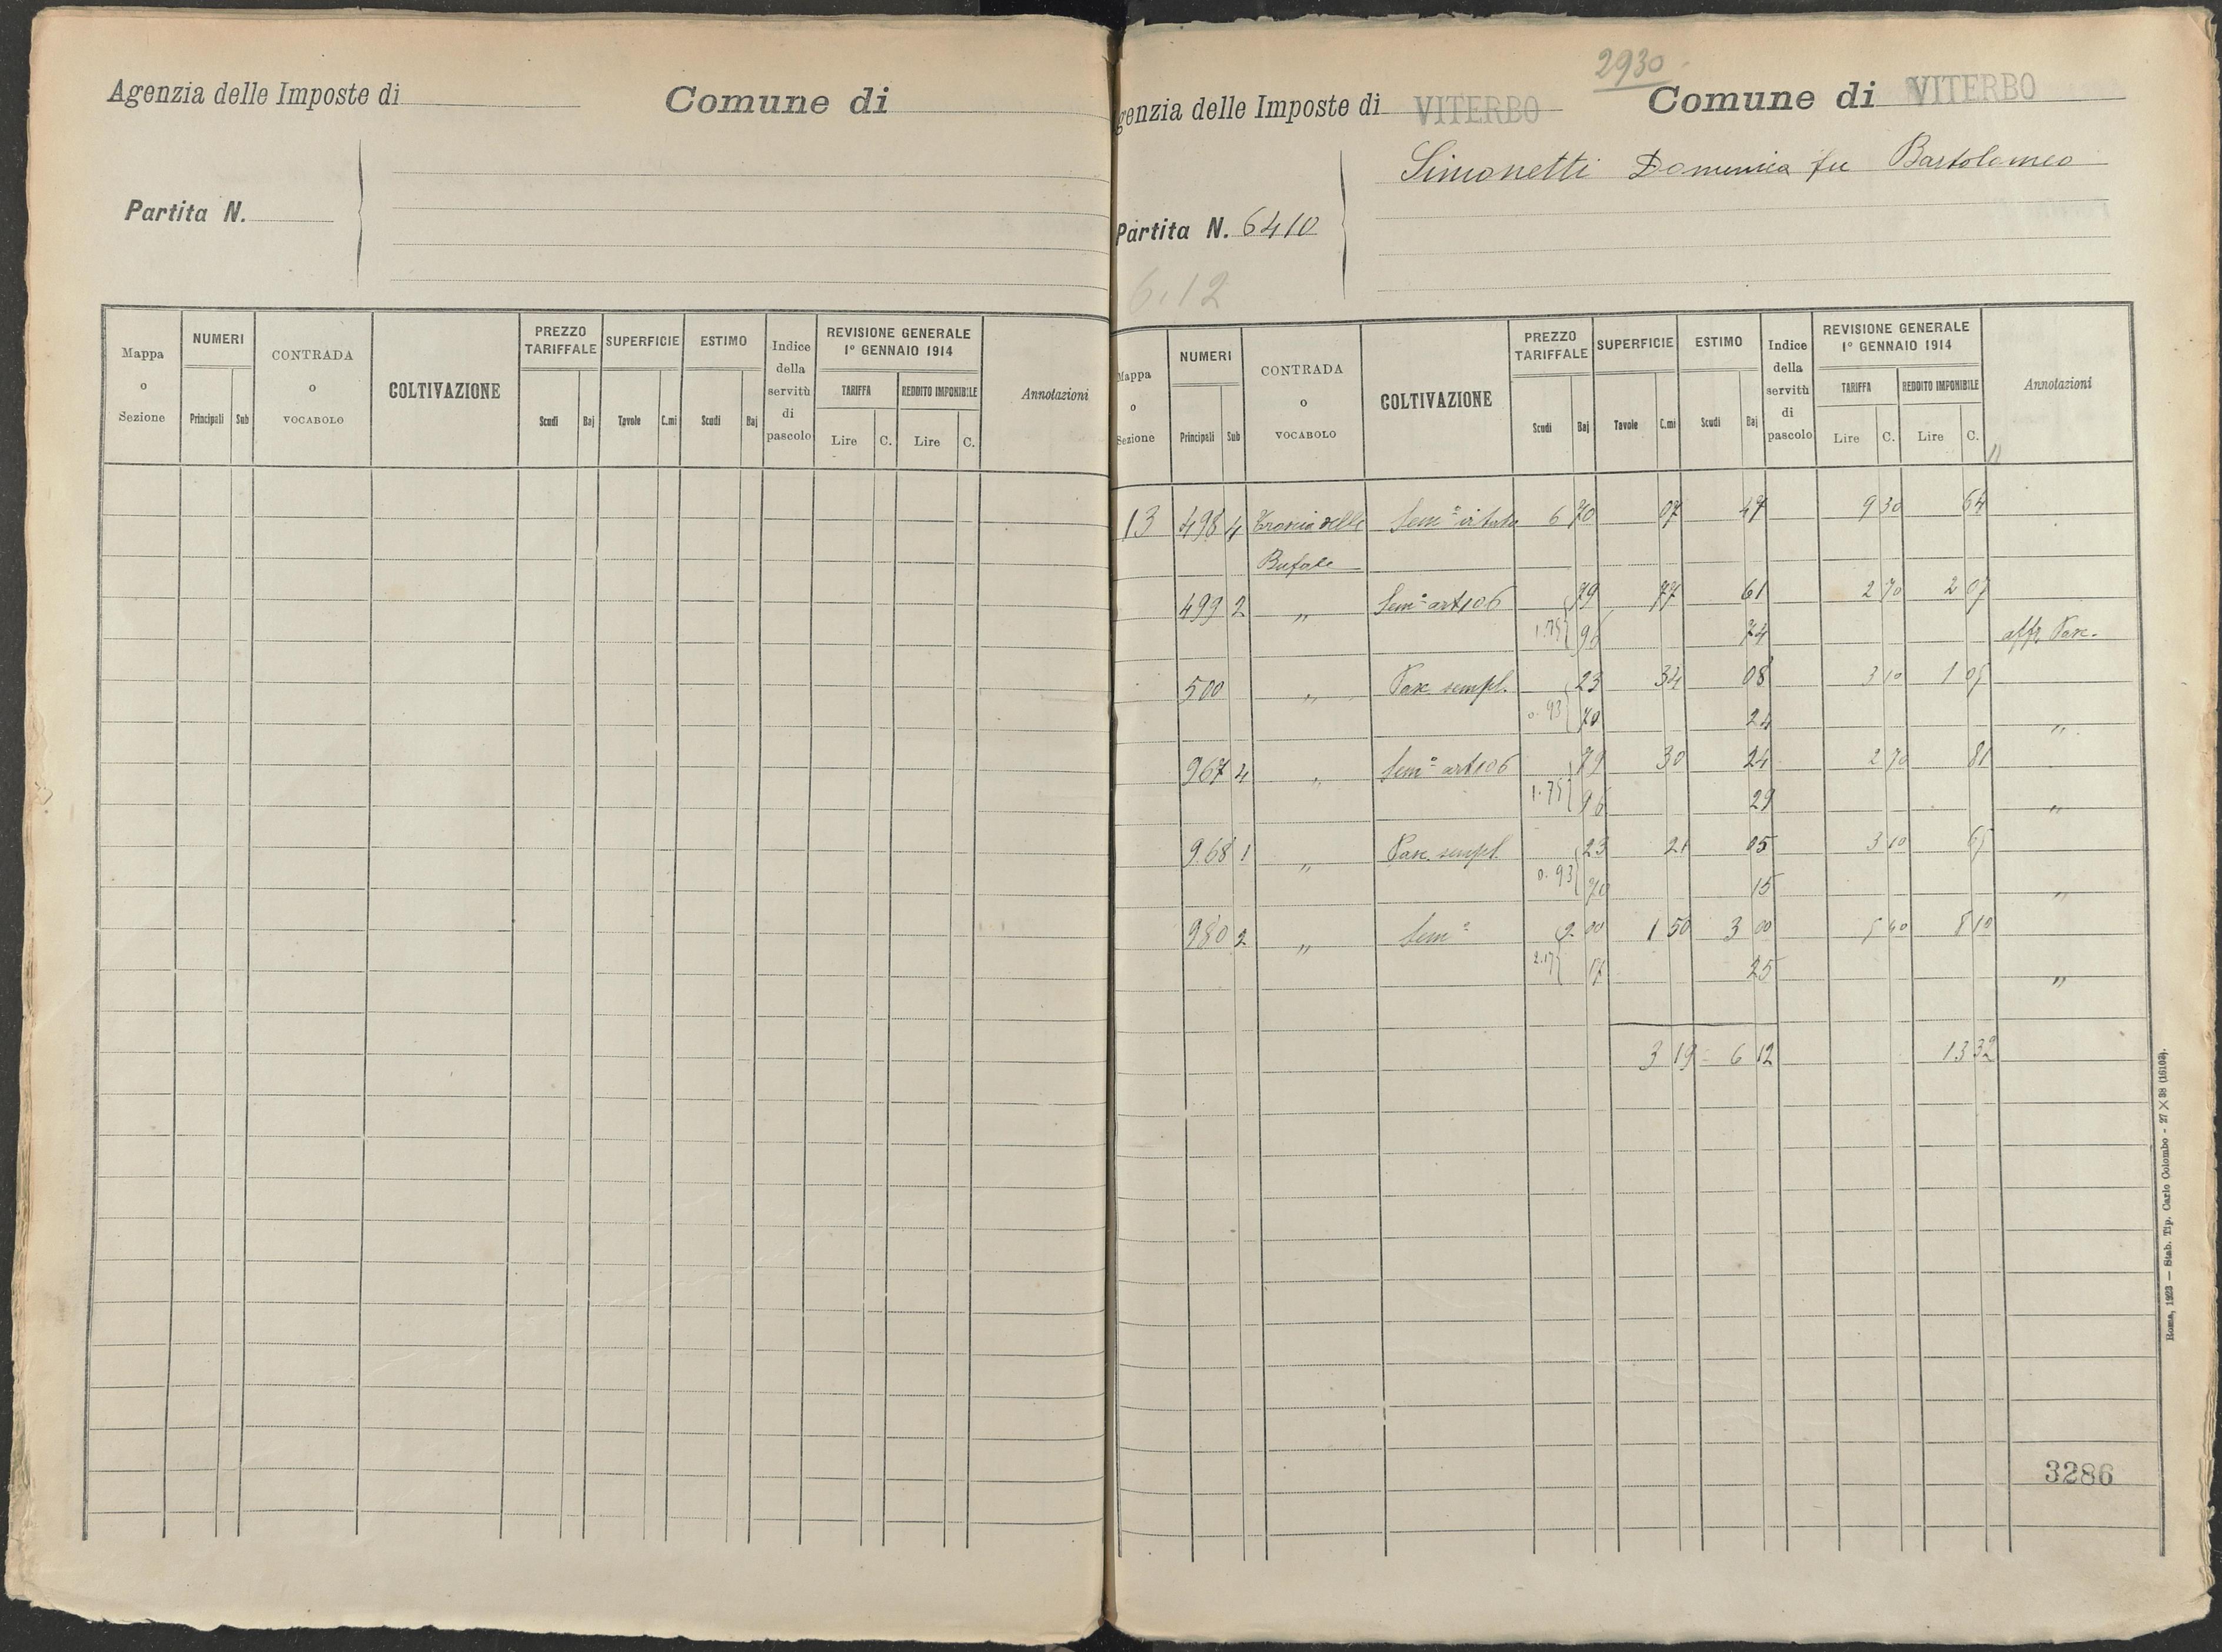 Agenzia delle Imposte di
Comune di
Partita N.
Mappa o Sezione
NUMERI
Principali Sub
CONTRADA o VOCABOLO
COLTIVAZIONE
PREZZO TARIFFALE
Scudi Baj
SUPERFICIE
Tavole C.mi
ESTIMO
Scudi Baj
Indice della servitù di pascolo
REVISIONE GENERALE 1° GENNAIO 1914
TARIFFA
Lire C.
REDDITO IMPONIBILE
Lire C.
Annotazioni
2930
genzia delle Imposte di VITERBO
Comune di VITERBO
Simonetti Domenica fu Bartolomeo
Partita N. 6410
6.12
Mappa o Sezione
NUMERI
Principali Sub
CONTRADA o VOCABOLO
COLTIVAZIONE
PREZZO TARIFFALE
Scudi Baj
SUPERFICIE
Tavole C.mi
ESTIMO
Scudi Baj
Indice della servitù di pascolo
REVISIONE GENERALE 1° GENNAIO 1914
TARIFFA
Lire C.
REDDITO IMPONIBILE
Lire C.
Annotazioni
13 498 4 delle Sem° vitato 6 70 07 47 9 30 64
Bufale
499 2 " Sem° art 106 79 77 61 2 70 2 07
1.75 96 74 affr. Pasc.
500 " Pasc. sempl. 23 34 08 3 10 1 05
0.93 70 24 "
967 4 " Sem° art 106 79 30 24 2 70 81
1.75 96 29 "
968 1 " Pasc. sempl. 23 21 05 3 10 65
0.93 70 15 "
980 2 " Sem° 2 00 1 50 3 00 5 40 8 10
2.17 17 25 "
3 19 6 12 13 32
3286
Roma, 1923 — Stab. Tip. Carlo Colombo - 27 × 38 (16103).